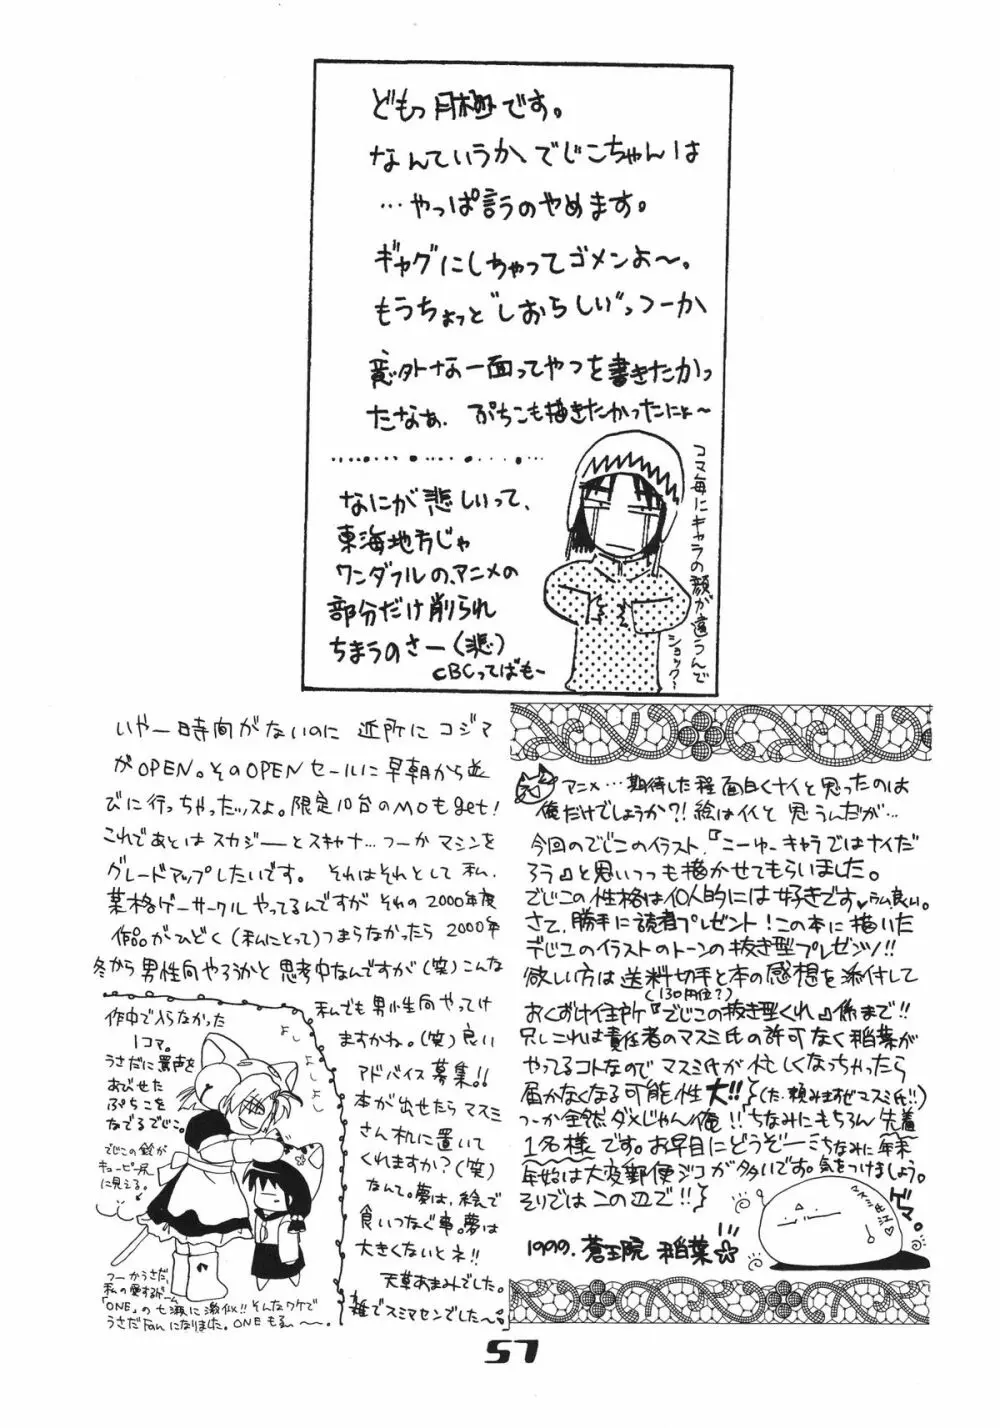 どもっ月極です。
なんていうか、でじこちゃんは
…やっぱ言うのやめます。
ギャグにしちゃってゴメンよ～。
もうちょっと"しおらしい"っつーか
意外な一面ってやつを書きたかっ
たなぁ。ぷちこも描きたかったにょ～
なにが悲しいって、
東海地方じゃ
ワンダフルの、アニメの
部分だけ削られ
ちまうのさー(悲)
CBCってばもー
コマ毎にキャラの顔が違うんで
ショック?
いやー時間がないのに 近所に コジマ
がOPEN。そのOPENセールに早朝から並
びに行っちゃたッスよ。限定10台のMOもget!
これであとは スカジーとスキャナ…つーか マシンを
グレードアップしたいです。それはそれとして 私、
葉格ゲーサークル やってるんですが その2000年度
作品がひどく(私にとって)つまらなかったら 2000年
冬から 男性向やろうかと 思考中なんですが(笑)こんな
私でも男性向やってけ
ますかね。(笑)良い
アドバイス募集!!
本が出せたら マスミ
さん机に置いて
くれますか?(笑)
なんて。夢は、絵で
食いつなぐ事。夢は
大きくないとネ!!
天草あまみでした。
雑でスミマセンでした～
作中で入らなかった
1コマ。
うさだに罵声を
あびせた
ぷちこを
なでるでじこ。
よしよし
よしよし
でじこの鈴が
キューピー尻
に見える。
つーかうさだ、
私の愛するゲーム
「ONE」の七瀬に激似!! そんなワケで
うさだfanになりました。ONEもえ～。
アニメ…期待した程 面白くナイと思ったのは
俺だけでしょうか?! 絵はイイと 思うんだが…
今回のでじこのイラスト、『こーゆーキャラではナイだ
ろう』と思いつつも描かせてもらいました。
でじこの性格は個人的には好きです♥ウム良い。
さて、勝手に読者プレゼント!この本に描いた
デじこのイラストのトーンの抜き型プレゼンツ!!
欲しい方は送料切手と本の感想を添付して
(130円位?)
おくずけ住所『でじこの抜き型くれ』係まで!!
只しこれは責任者のマスミ氏の許可なく稲葉が
やってるコトなので マスミ氏が忙しくなっちゃったら
届かなくなる可能性大!!(た、頼みますぜマスミ氏!!)
つーか全然ダメじゃん俺!!ちなみにもちろん 先着
1名様です。お早目にどうぞー ちなみに年末
年始は大変郵便ジコが多いです。気をつけましょう。
そりではこの辺で!!
1999. 蒼王院 稲葉
ゲマ。
57